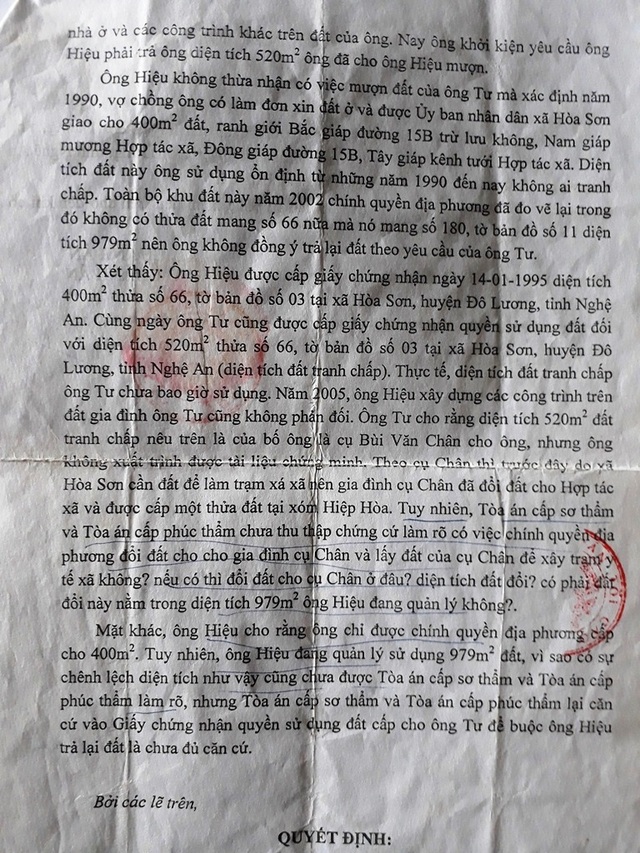 nhà ở và các công trình khác trên đất của ông. Nay ông khởi kiện yêu cầu ông
Hiệu phải trả ông diện tích 520m² ông đã cho ông Hiệu mượn.
Ông Hiệu không thừa nhận có việc mượn đất của ông Tư mà xác định năm
1990, vợ chồng ông có làm đơn xin đất ở và được Ủy ban nhân dân xã Hòa Sơn
giao cho 400m² đất, ranh giới Bắc giáp đường 15B trừ lưu không, Nam giáp
mương Hợp tác xã, Đông giáp đường 15B, Tây giáp kênh tưới Hợp tác xã. Diện
tích đất này ông sử dụng ổn định từ những năm 1990 đến nay không ai tranh
chấp. Toàn bộ khu đất này năm 2002 chính quyền địa phương đã đo vẽ lại trong
đó không có thửa đất mang số 66 nữa mà nó mang số 180, tờ bản đồ số 11 diện
tích 979m² nên ông không đồng ý trả lại đất theo yêu cầu của ông Tư.
Xét thấy: Ông Hiệu được cấp giấy chứng nhận ngày 14-01-1995 diện tích
400m² thửa số 66, tờ bản đồ số 03 tại xã Hòa Sơn, huyện Đô Lương, tỉnh Nghệ
An. Cùng ngày ông Tư cũng được cấp giấy chứng nhận quyền sử dụng đất đối
với diện tích 520m² thửa số 66, tờ bản đồ số 03 tại xã Hòa Sơn, huyện Đô
Lương, tỉnh Nghệ An (diện tích đất tranh chấp). Thực tế, diện tích đất tranh chấp
ông Tư chưa bao giờ sử dụng. Năm 2005, ông Hiệu xây dựng các công trình trên
đất gia đình ông Tư cũng không phản đối. Ông Tư cho rằng diện tích 520m² đất
tranh chấp nêu trên là của bố ông là cụ Bùi Văn Chân cho ông, nhưng ông
không xuất trình được tài liệu chứng minh. Theo cụ Chân thì trước đây do xã
Hòa Sơn cần đất để làm trạm xá xã nên gia đình cụ Chân đã đổi đất cho Hợp tác
xã và được cấp một thửa đất tại xóm Hiệp Hòa. Tuy nhiên, Tòa án cấp sơ thẩm
và Tòa án cấp phúc thẩm chưa thu thập chứng cứ làm rõ có việc chính quyền địa
phương đổi đất cho cho gia đình cụ Chân và lấy đất của cụ Chân để xây trạm y
tế xã không? nếu có thì đổi đất cho cụ Chân ở đâu? diện tích đất đổi? có phải đất
đổi này nằm trong diện tích 979m² ông Hiệu đang quản lý không?.
Mặt khác, ông Hiệu cho rằng ông chỉ được chính quyền địa phương cấp
cho 400m². Tuy nhiên, ông Hiệu đang quản lý sử dụng 979m² đất, vì sao có sự
chênh lệch diện tích như vậy cũng chưa được Tòa án cấp sơ thẩm và Tòa án cấp
phúc thẩm làm rõ, nhưng Tòa án cấp sơ thẩm và Tòa án cấp phúc thẩm lại căn
cứ vào Giấy chứng nhận quyền sử dụng đất cấp cho ông Tư để buộc ông Hiệu
trả lại đất là chưa đủ căn cứ.
Bởi các lẽ trên,
QUYẾT ĐỊNH: